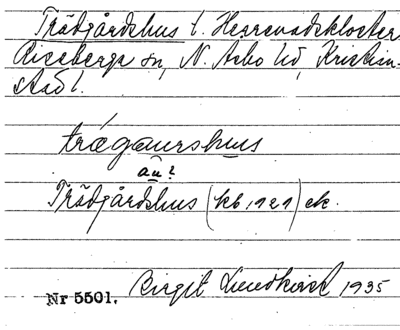 Trädgårdshus t. Herrevadskloster,
Riseberga sn, N. Åsbo hd, Kristian-
stad l.
trägaurshus
au?
Trädgårdshus (kb. 1921) ek.
Nr 5501. Birgit Lundkvist 1935